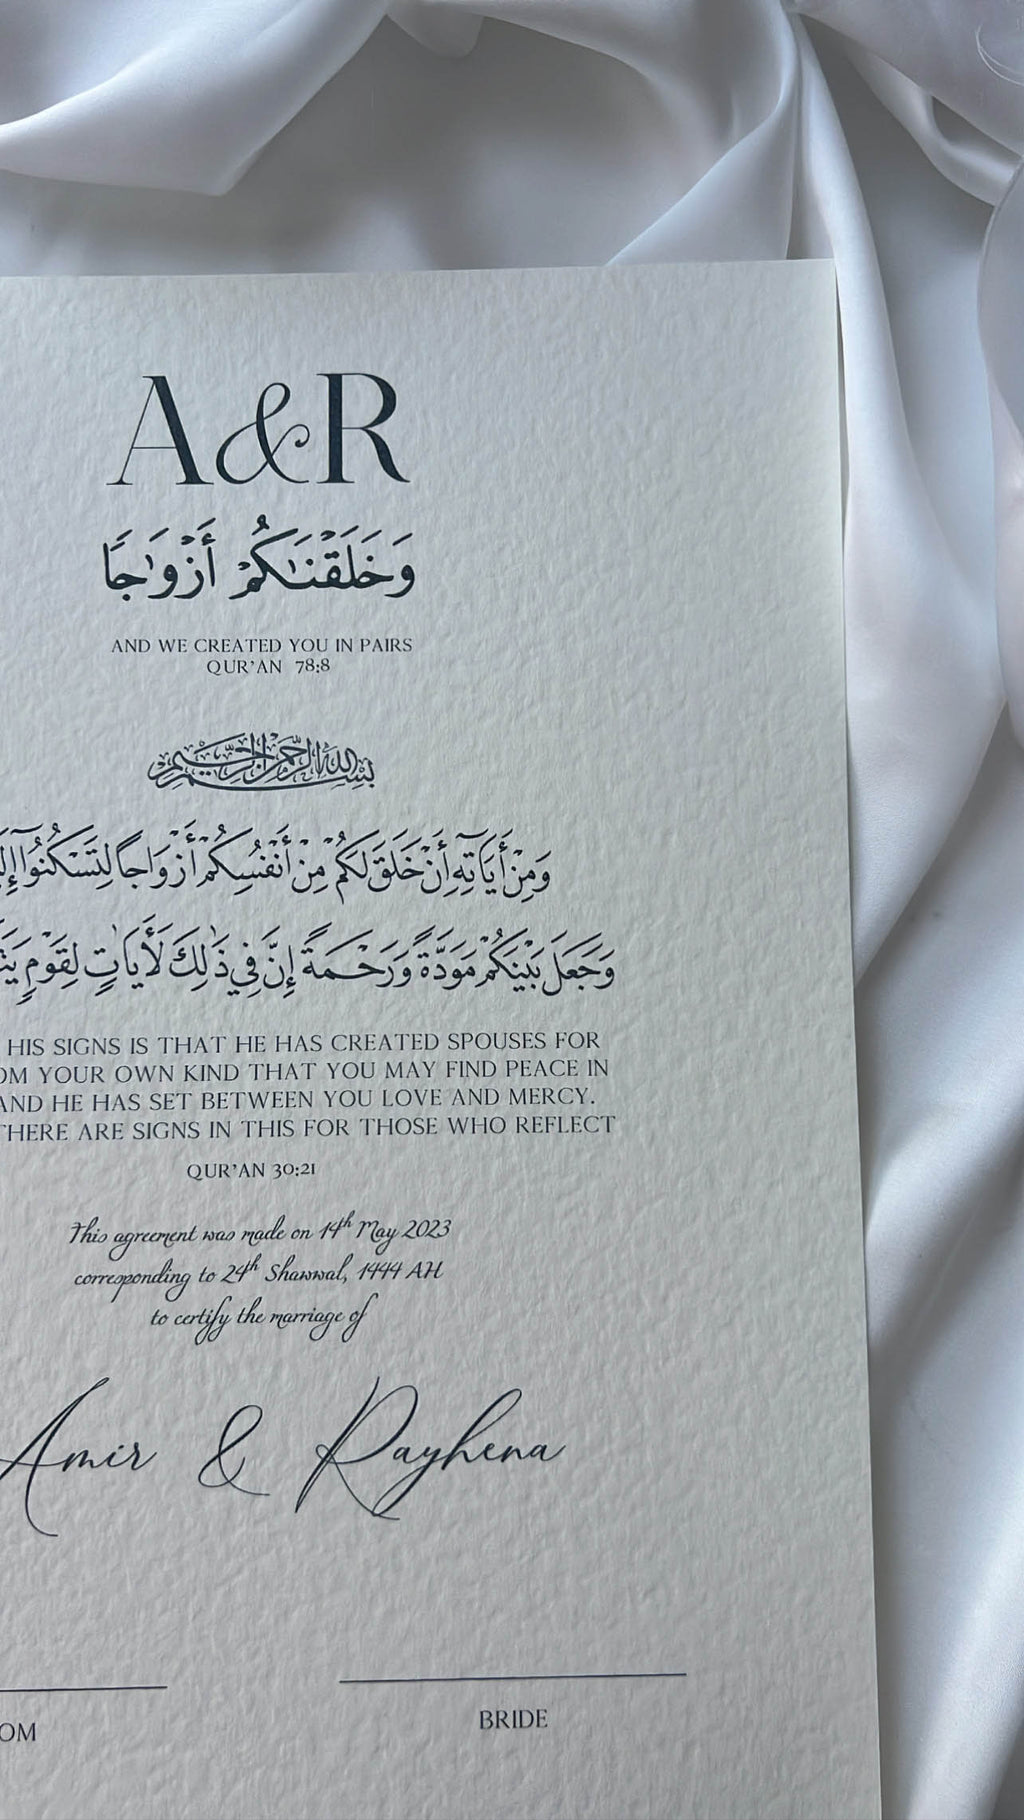 A&R
وَخَلَقْنَٰكُمْ أَزْوَٰجًا
AND WE CREATED YOU IN PAIRS
QUR'AN 78:8
بسم الله الرحمن الرحيم
وَمِنْ أَيَاتِهِ أَنْ خَلَقَ لَكُمْ مِنْ أَنْفُسِكُمْ أَزْوَاجاً لِتَسْكُنُوا
وَجَعَلَ بَيْنَكُمْ مَوَدَّةً وَرَحْمَةً إِنَّ فِي ذَٰلِكَ لَأَيَاتٍ لِقَوْمٍ
HIS SIGNS IS THAT HE HAS CREATED SPOUSES FOR
OM YOUR OWN KIND THAT YOU MAY FIND PEACE IN
AND HE HAS SET BETWEEN YOU LOVE AND MERCY.
THERE ARE SIGNS IN THIS FOR THOSE WHO REFLECT
QUR'AN 30:21
This agreement was made on 14th May 2023
corresponding to 24th Shawwal, 1444 AH
to certify the marriage of
Amir & Rayhena
OM BRIDE